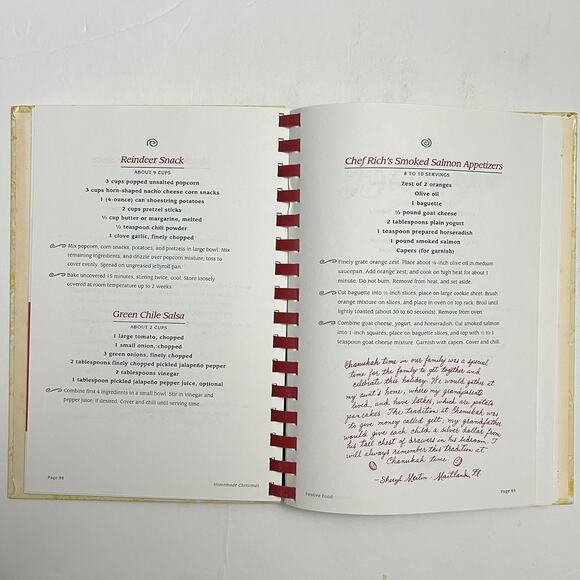 Reindeer Snack
ABOUT 9 CUPS
3 cups popped unsalted popcorn
3 cups horn-shaped nacho cheese corn snacks
1 (4-ounce) can shoestring potatoes
2 cups pretzel sticks
cup butter or margarine, melted
teaspoon chili powder
1 clove garlic, finely chopped
Mix popcorn, corn snacks, potatoes, and pretzels in large bowl. Mix
remaining ingredients, and drizzle over popcorn mixture; toss to
cover evenly. Spread on ungreased jellyroll pan.
Bake uncovered 15 minutes, stirring twice; cool. Store loosely
covered at room temperature up to 2 weeks.
Green Chile Salsa
ABOUT 2 CUPS
1 large tomato, chopped
1 small onion, chopped
3 green onions, finely chopped
2 tablespoons finely chopped pickled jalapeño pepper
2 tablespoons vinegar
1 tablespoon pickled jalapeño pepper juice, optional
Combine first 4 ingredients in a small bowl. Stir in vinegar and
pepper juice, if desired. Cover and chill until serving time
Page
Homemade Christmas
Chef Rich's Smoked Salmon Appetizers
8 TO 10 SERVINGS
Zest of 2 oranges
Olive oil
1 baguette
½ pound goat cheese
2 tablespoons plain yogurt
1 teaspoon prepared horseradish
1 pound smoked salmon
Capers (for garnish)
Finely grate orange zest. Place about -inch olive oil in medium
saucepan. Add orange zest, and cook on high heat for about 1
minute. Do not burn. Remove from heat, and set aside.
Cut baguette into ½-inch slices; place on large cookie sheet. Brush
orange mixture on slices, and place in oven on top rack. Broil until
lightly toasted (about 30 to 60 seconds). Remove from oven.
Combine goat cheese, yogurt, and horseradish. Cut smoked salmon
into 1-inch squares; place on baguette slices, and top with ½ to 1
teaspoon goat cheese mixture. Garnish with capers. Cover and chill.
Chanukah time in our family was a special
time for the family to get together and
celebrate this holiday. We would gather at
my aunt's home, where my grandparents
lived, and have latkes, which are potato
pancakes. The tradition at Chanukah was
to give money called gelt; my grandfather
would give each child a silver dollar from
his tall chest of drawers in his bedroom. I
will always remember this tradition at
Chanukah time.
-Sheryl Maitland, FL
Festive Food
Page